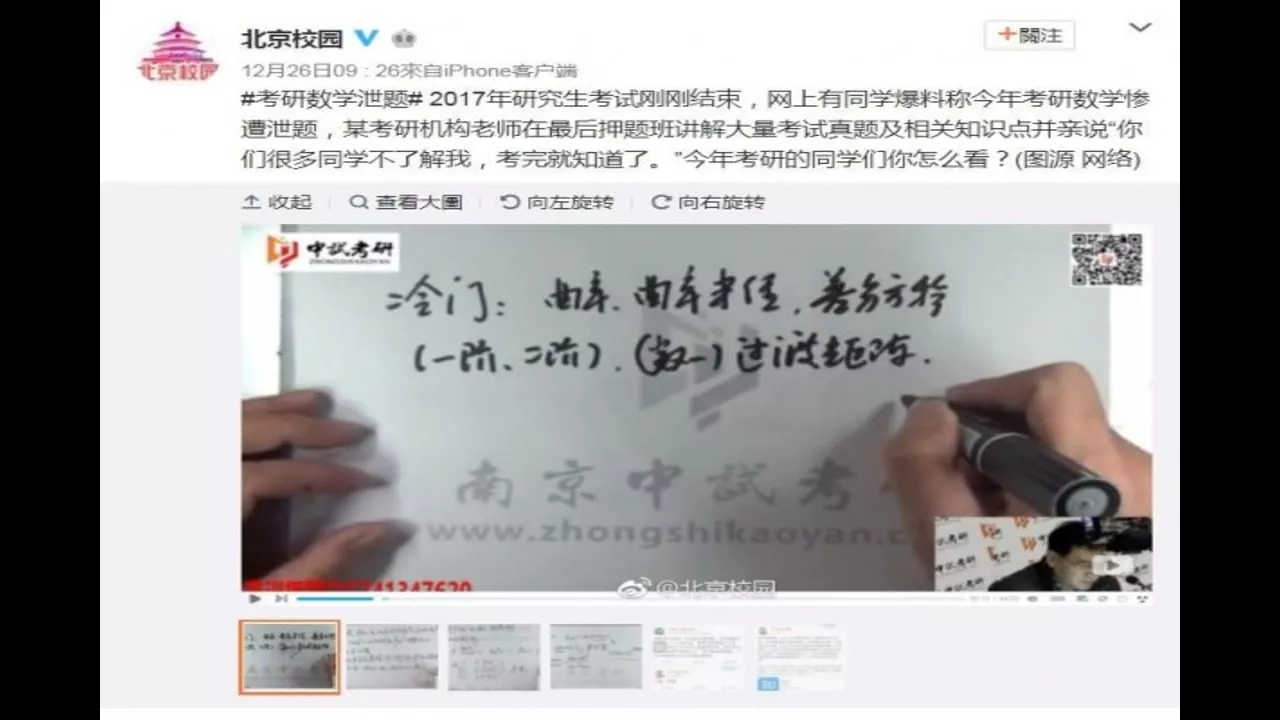 北京校园
北京校园
+關注
12月26日09：26來自iPhone客户端
#考研数学泄题# 2017年研究生考试刚刚结束，网上有同学爆料称今年考研数学惨
遭泄题，某考研机构老师在最后押题班讲解大量考试真题及相关知识点并亲说“你
们很多同学不了解我，考完就知道了。”今年考研的同学们你怎么看？(图源 网络)
收起
查看大圖
向左旋转
向右旋转
中試考研
ZHONGSHIKAOYAN
二冷门：曲率、曲率半径，差分方程
(一阶、二阶)．(数一)过渡矩阵．
南京中試考
www.zhongshikaoyan.c
中試考研
@北京校园